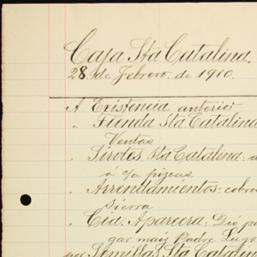 Caja Sta Catalina.
28. de Febrero. de 1910.
A Existencia anterior
" Tienda Sta Catalina
Ventas
" Sta Catalina.
á
" Arrendamientos: cobra
Sierra
" Cia. Aparcera: Dió pa
gar maíz Padre Lugo
por Semillas Sta Catalin